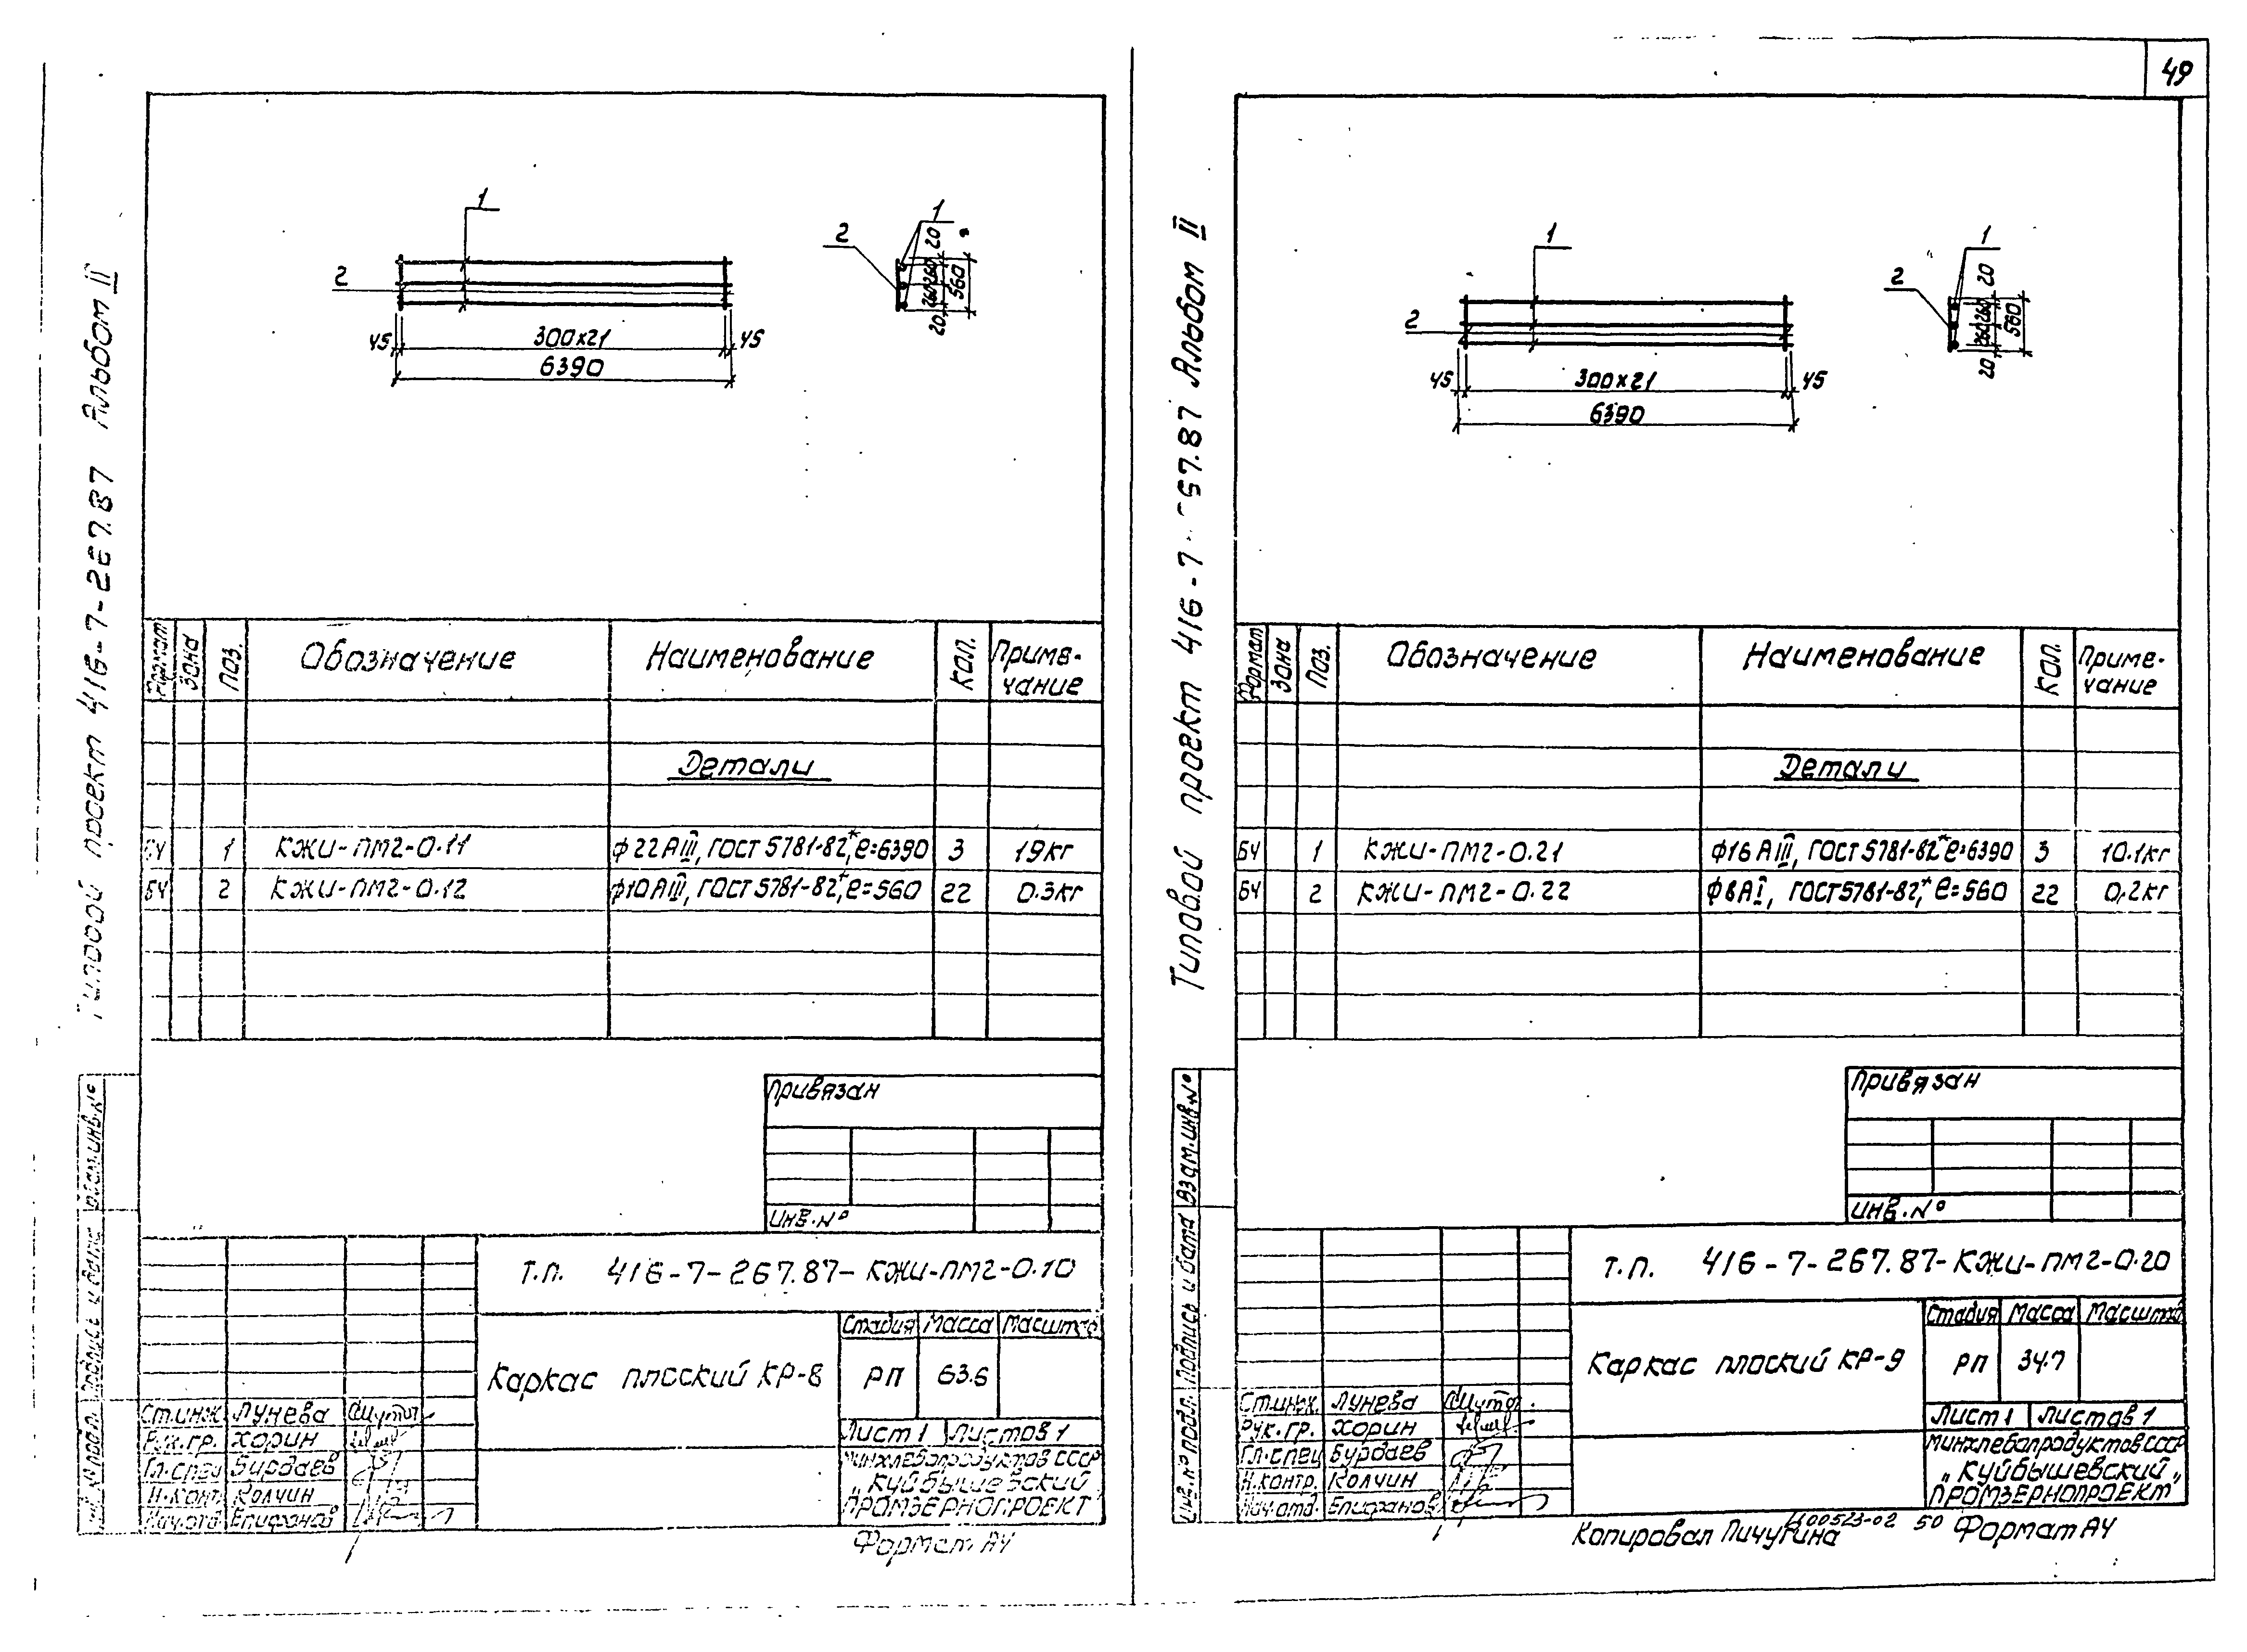 49
Типовой проект 416-7-267.87 Альбом II
1
2
45
300×21
45
6390
1
2
20
260 260
560
20
Формат
Зона
Поз.
Обозначение
Наименование
Кол.
Приме-
чание
Детали
БЧ 1 КЖИ-ПМ2-0.11 ф22АIII, ГОСТ 5781-82*, ℓ=6390 3 19кг
БЧ 2 КЖИ-ПМ2-0.12 ф10АIII, ГОСТ 5781-82*, ℓ=560 22 0.3кг
Привязан
Инв.№
Взам.инв.№
Подпись и дата
Т.П. 416-7-267.87-КЖИ-ПМ2-0.10
Каркас плоский КР-8
Стадия Масса Масштаб
РП 63.6
Лист 1 Листов 1
Минхлебопродуктов СССР
„Куйбышевский
ПРОМЗЕРНОПРОЕКТ"
Ст.инж. Лунева
Рук.гр. Хорин
Гл.спец Бурдаев
Н.конт. Колчин
Нач.отд. Епифанов
Формат А4
Типовой проект 416-7-267.87 Альбом II
1
2
45
300×21
45
6390
1
2
20
260 260
560
20
Формат
Зона
Поз.
Обозначение
Наименование
Кол.
Приме-
чание
Детали
БЧ 1 КЖИ-ПМ2-0.21 ф16АIII, ГОСТ 5781-82* ℓ=6390 3 10.1кг
БЧ 2 КЖИ-ПМ2-0.22 ф8АI, ГОСТ 5781-82*, ℓ=560 22 0,2кг
Привязан
Инв.№
Взам.инв.№
Подпись и дата
Инв.№ подл.
Т.П. 416-7-267.87-КЖИ-ПМ2-0.20
Каркас плоский КР-9
Стадия Масса Масштаб
РП 34.7
Лист 1 Листов 1
Минхлебопродуктов СССР
„Куйбышевский„
ПРОМЗЕРНОПРОЕКТ
Ст.инж. Лунева
Рук.гр. Хорин
Гл.спец Бурдаев
Н.контр. Колчин
Нач.отд. Епифанов
Копировал Пичугина
Ц00523-02 50 Формат А4